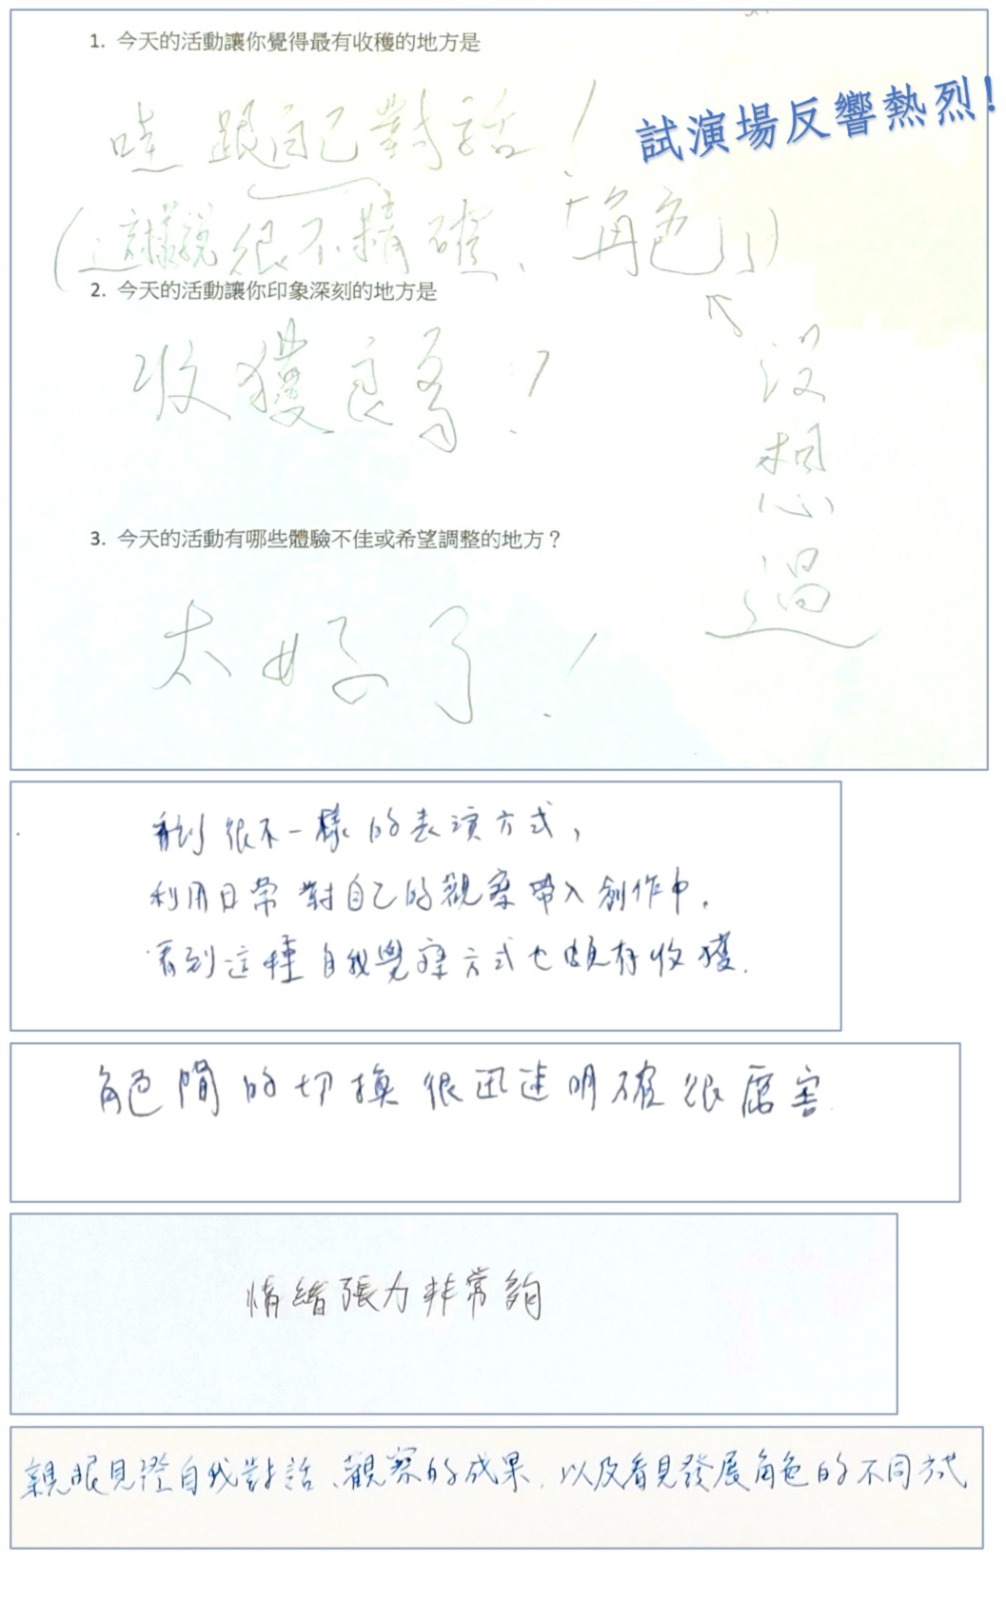 1. 今天的活動讓你覺得最有收穫的地方是
試演場反響熱烈!
哇 跟自己對話!
(這樣說很不精確、「角色」)
2. 今天的活動讓你印象深刻的地方是
收獲良多!
沒想過
3. 今天的活動有哪些體驗不佳或希望調整的地方?
太好了!
看到很不一樣的表演方式,
利用日常對自己的觀察帶入創作中.
看到這種自我覺察方式也頗有收獲.
角色間的切換很迅速明確很厲害.
情緒張力非常夠
親眼見證自我對話、觀察的成果.以及看見發展角色的不同方式